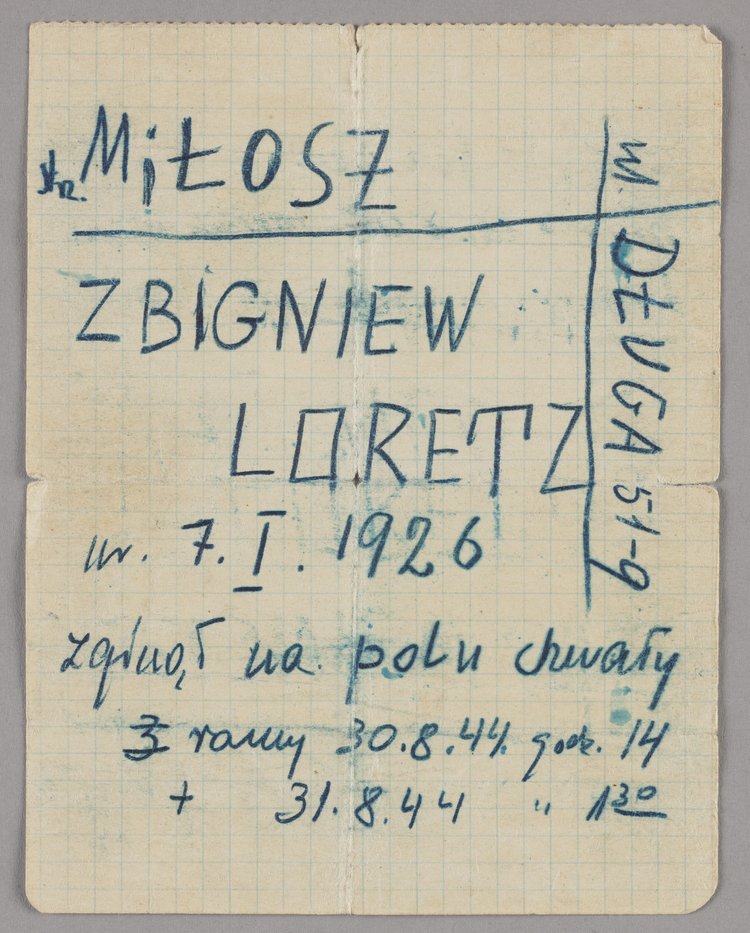 str. MiŁOSZ
ZBIGNIEW
LORETZ
ur. 7. I. 1926
zginął na polu chwały
ranny 30.8.44. godz. 14
+ 31.8.44 " 1³⁰
ul. DŁUGA 51-9